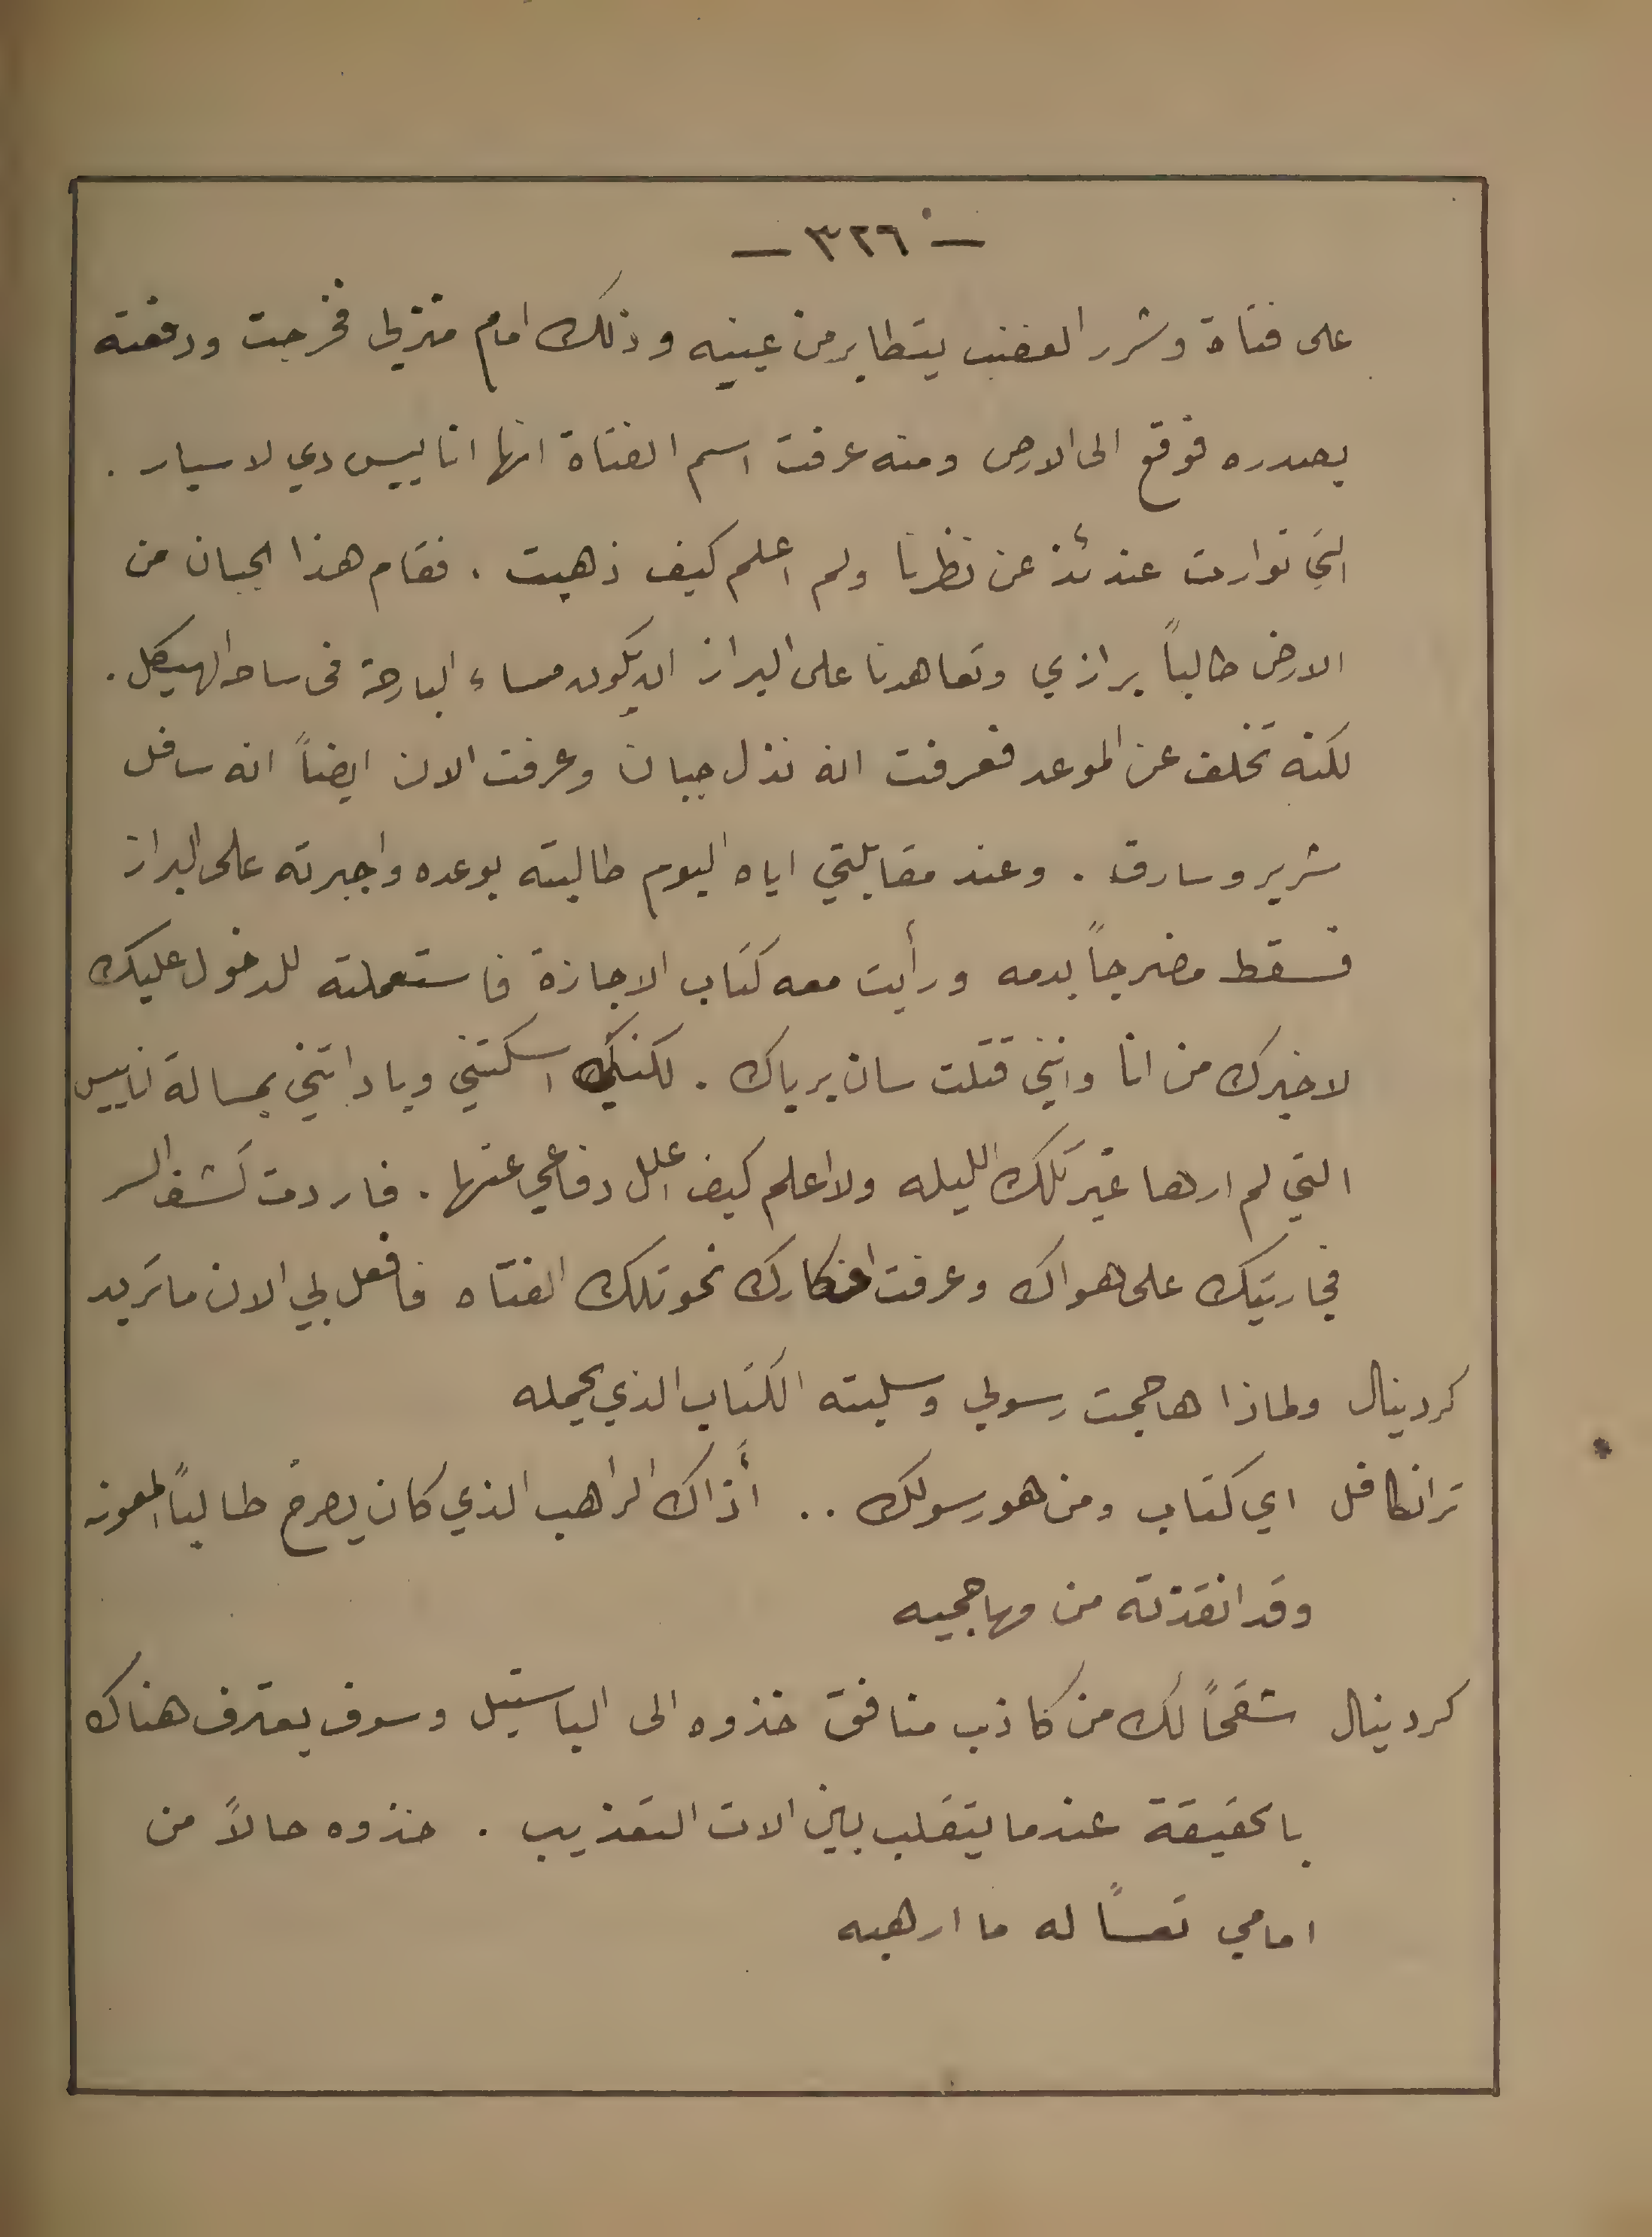 — ٣٢٦ —
على فتاة وشرر الغضب يتطاير من عينيه وذلك امام منزلي فخرجت ودفعته
بصدره فوقع الى الارض ومنه عرفت اسم الفتاة انها اناييس دي لاسيار .
التي توارت عندئذ عن نظرنا ولم اعلم كيف ذهبت . فقام هذا الجبان من
الارض طالباً برازي وتعاهدنا على البراز ان يكون مساء البارحة في ساحة الهيكل .
لكنه تخلف عن الموعد فعرفت انه نذل جبان وعرفت الان ايضاً انه سافل
شرير وسارق . وعند مقابلتي اياه اليوم طالبته بوعده واجبرته على البراز
فسقط مضرجاً بدمه ورأيت معه كتاب الاجازة فاستعملته للدخول عليك
لاخبرك من انا وانني قتلت سان برياك . لكنك اسكتني وباداتني بمسالة اناييس
التي لم ارها غير تلك الليله ولا اعلم كيف اعلل دفاعي عنها . فاردت كشف السر
فجاريتك على هواك وعرفت افكارك نحو تلك الفتاه فافعل بي الان ما تريد
كردينال ولماذا هاجمت رسولي وسلبته الكتاب الذي يحمله
ترانكافل اي كتاب ومن هو رسولك .. أذاك الراهب الذي كان يصرخ طالباً المعونه
وقد انقذته من مهاجميه
كردينال شقحاً لك من كاذب منافق خذوه الى الباستيل وسوف يعترف هناك
بالحقيقة عندما يتقلب بين الات التعذيب . خذوه حالاً من
امامي تعساً له ما ارهبه